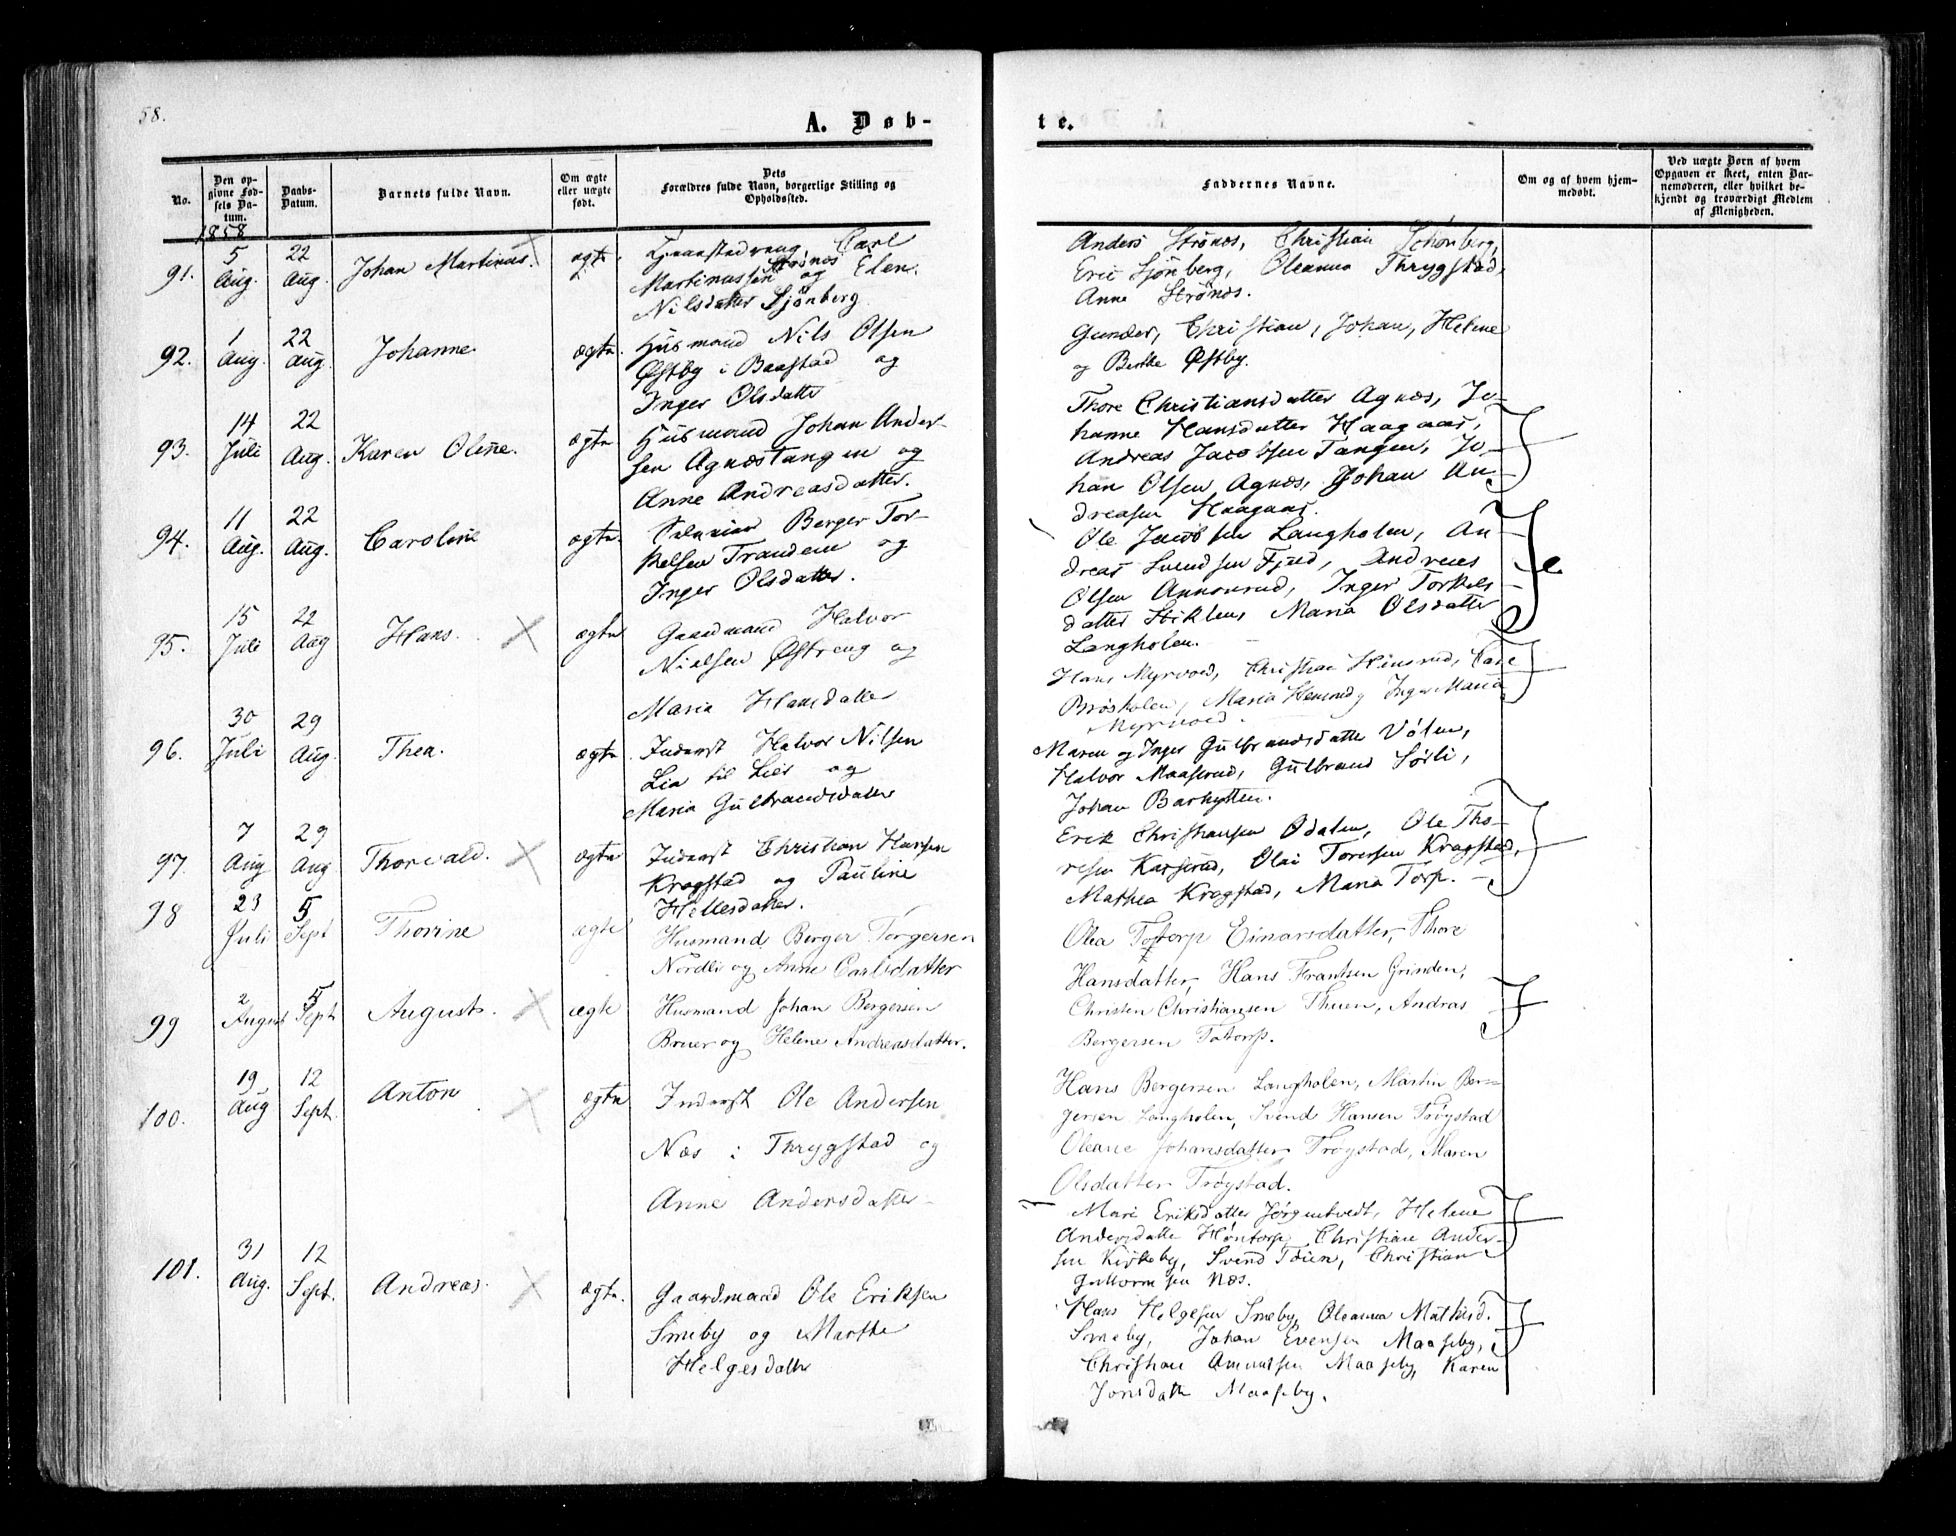 58.
A. Døb-
te.
No.
Den op-
givne Fød-
sels Da-
tum.
Daabs-
Datum.
Barnets fulde Navn.
Om ægte
eller uægte
født.
Dets
Forældres fulde Navn, borgerlige Stilling og
Opholdssted.
Faddernes Navne.
Om og af hvem hjem-
medøbt.
Ved uægte Børn af hvem
Opgaven er skeet, enten Bar-
nemoderen, eller hvilket be-
kjendt og troværdigt Medlem
af Menigheden.
1858
91.
5
Aug.
22
Aug.
Johan Martinus.
ægte
Carl
Strønes
Martinussen og Elen
Nilsdatter Sjønberg
Anders Strønes, Christian Schønberg,
Eric Sjönberg, Oleanna Thrygstad,
Anne Strønes.
92.
1
Aug.
22
Aug.
Johanne
ægte.
Husmand Nils Olsen
Østby i Baastad og
Inger Olsdatter
Gunder, Christian, Johan, Helene
og Berthe Østby.
93.
14
Juli
22
Aug.
Karen Oline.
ægte
Husmand Johan Ander-
sen Agnæstangen og
Anne Andreasdatter.
Thore Christiansdatter Agnæs, Jo-
hanne Hansdatter Haagaas,
Andreas Jacobsen Tangen, Jo-
han Olsen Agnæs, Johan An-
dreasen Haagaas.
94.
11
Aug.
22
Aug.
Caroline
ægte.
Berger Tor-
kelsen Trandem og
Inger Olsdatter.
Ole Jacobsen Langholen, An-
dreas Svendsen Fjeld, Andreas
Olsen Annonrud, Inger Torkels
datter Stiklen, Maria Olsdatter
Langholen.
95.
15
Juli
22
Aug
Hans.
ægte
Gaardmand Halvor
Nielsen Østreng og
Maria Hansdatter
Hans Myrvold, Christian
Brøsholen, Maria Inger Maria
Myrvold.
96.
30
Juli
29
Aug.
Thea.
ægte
Inderst Halvor Nilsen
Lia til Lier og
Maria Gulbrandsdatter
Maren og Inger Gulbrandsdatter Vølen,
Halvor Maaserud, Gulbrand Sørli,
Johan Barhytten.
97.
7
Aug
29
Aug
Thorvald.
ægte
Inderst Christian Hansen
Kragstad og Pauline
Hellesdatter.
Erik Christiansen Ødalen, Ole Tho-
resen Karserud, Olai Toresen Kragstad,
Mathea Kragstad, Maria Torp.
98
23
Juli
5
Sept
Thorine
ægte
Husmand Berger Torgersen
Nordli og Anne Carlsdatter
Olea Tostorp Einarsdatter, Thore
Hansdatter, Hans Frantsen Grinden,
Christen Christiansen Thuen, Andras
Bergersen Tostorp.
99
2
August
5
Sept
August.
ægte
Husmand Johan Bergersen
Bruer og Helene Andreasdatter.
Hans Bergersen Langholen, Martin Ber-
gersen Langholen, Svend Hansen Trøystad
Oleane Johansdatter Trøystad, Maren
Olsdatter Trøystad.
100.
19
Aug
12
Sept.
Anton
ægte
Inderst Ole Andersen
Næs i Thrygstad og
Anne Andersdatter
Mari Eriksdatter Jørgentvedt, Helene
Andersdatter Høntorp, Christian Ander-
sen Kirkeby, Svend Tøien, Christian
Guttormsen Næs.
101.
31
Aug.
12
Sept.
Andreas.
ægte.
Gaardmand Ole Eriksen
Smeby og Marthe
Helgesdatter
Hans Helgesen Smeby, Oleanna Mathisd.
Smeby, Johan Evensen Maaseby,
Christian Amundsen Maaseby, Karen
Jonsdatter Maaseby.